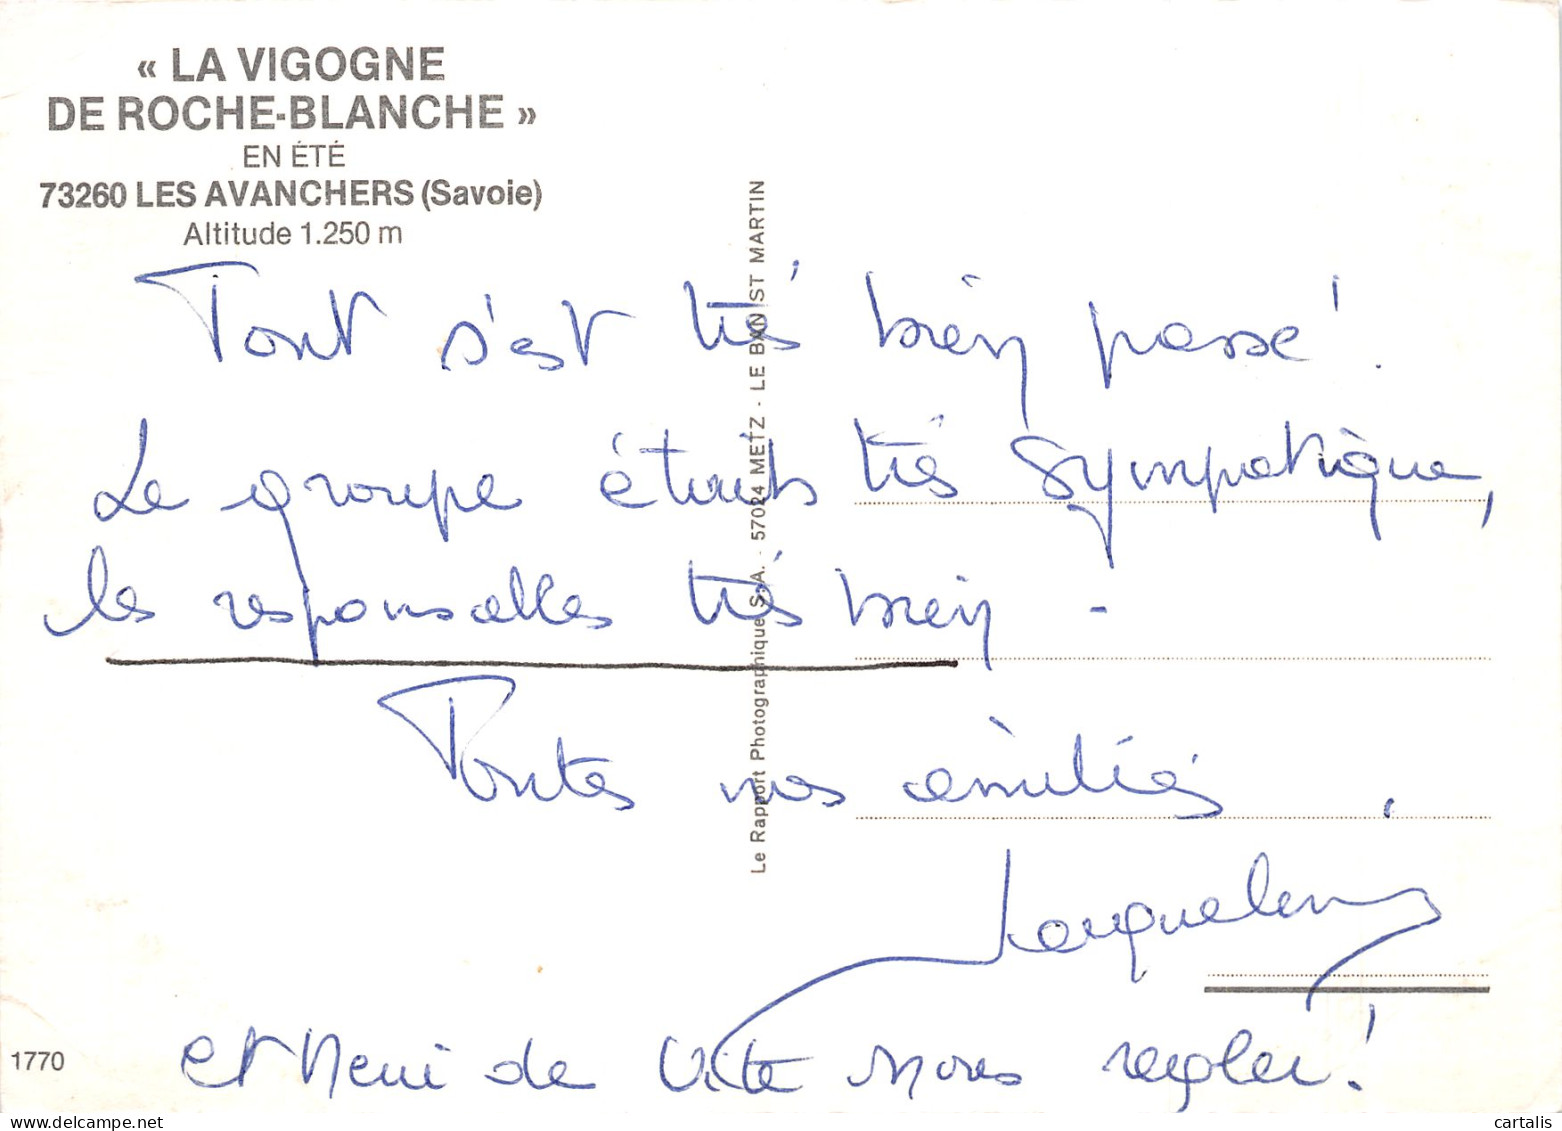 « LA VIGOGNE
DE ROCHE-BLANCHE »
EN ÉTÉ
73260 LES AVANCHERS (Savoie)
Altitude 1.250 m
Tout s'est très bien passé !
Le groupe était très sympatique,
les responsables très bien -
Toutes nos amitiés.
Jacqueline
et Merci de vite nous régler !
1770
Le Rapport Photographique S.A. - 57024 METZ - LE BAN ST MARTIN
cartalis